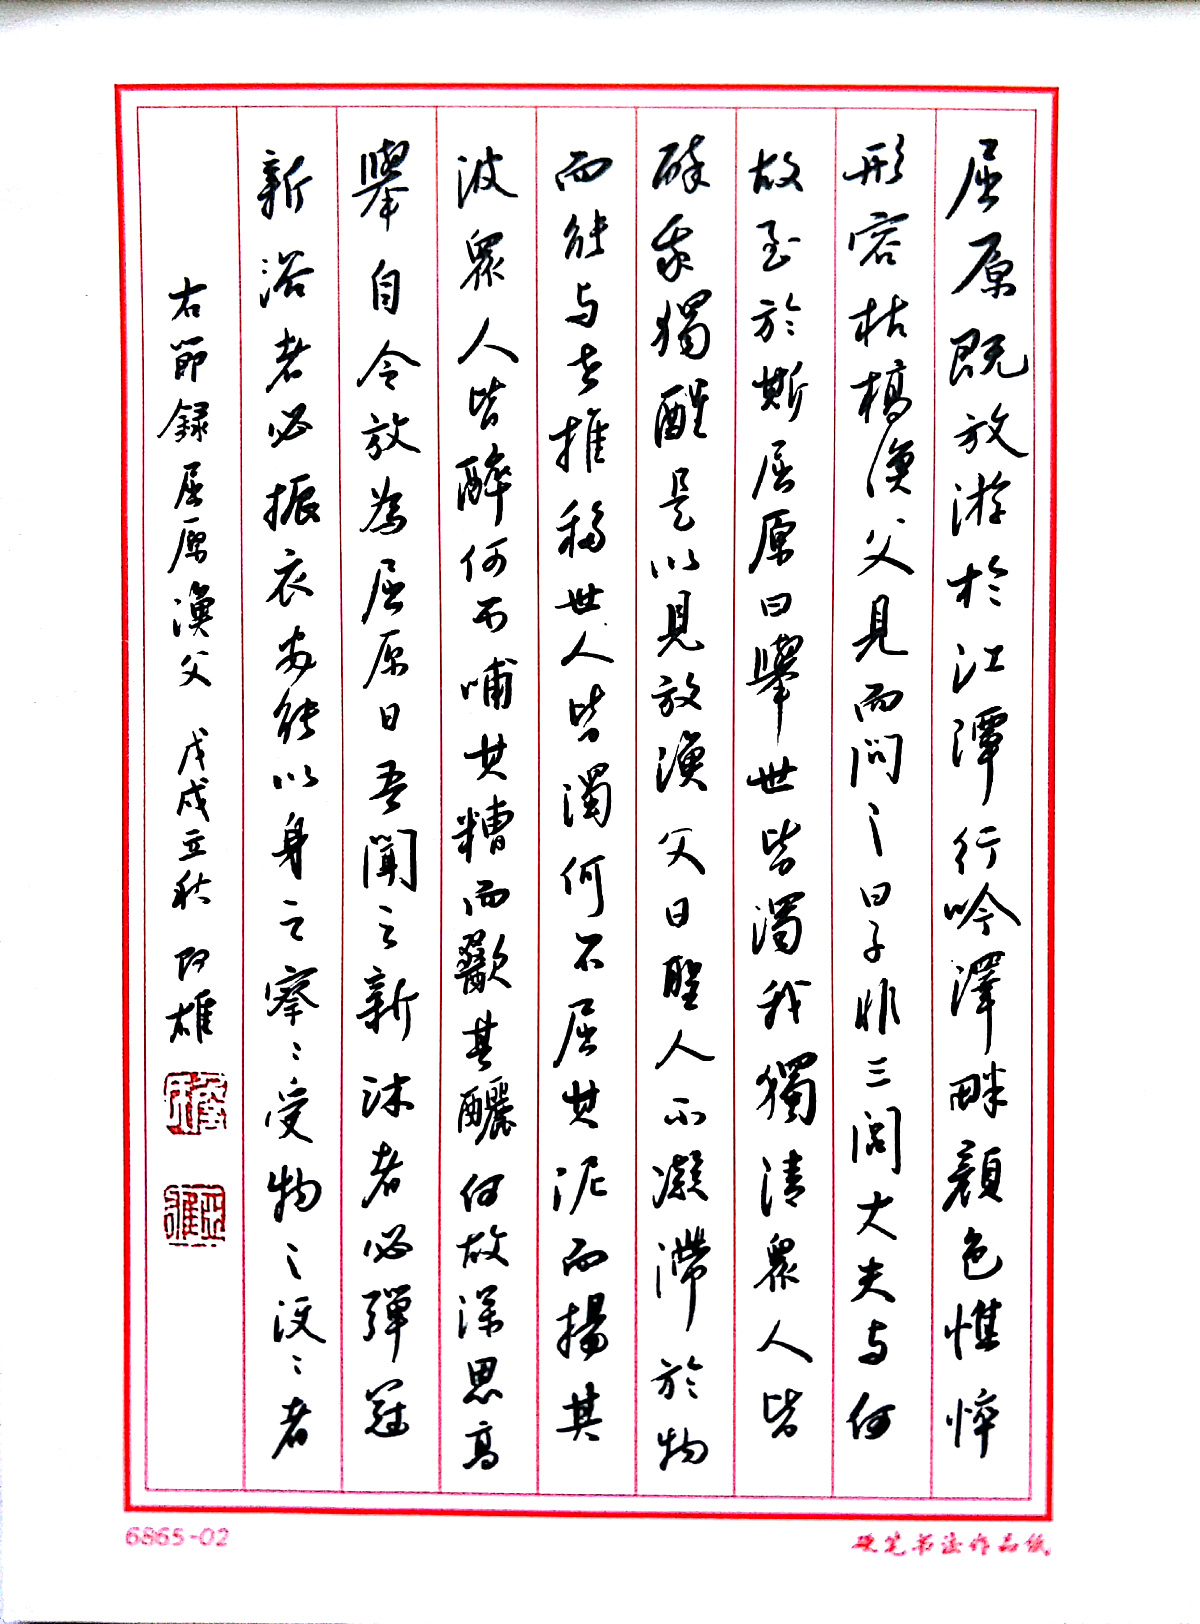 屈原既放游於江潭行吟澤畔顏色憔悴
形容枯槁漁父見而問之曰子非三閭大夫与何
故至於斯屈原曰舉世皆濁我獨清眾人皆
醉我獨醒是以見放漁父曰聖人不凝滯於物
而能与世推移世人皆濁何不屈其泥而揚其
波眾人皆醉何不哺其糟而歠其釃何故深思高
舉自令放為屈原曰吾聞之新沐者必彈冠
新浴者必振衣安能以身之察〻受物之汶〻者
右節録屈原漁父 戊戌立秋 阿雄
6865-02
硬笔书法作品纸